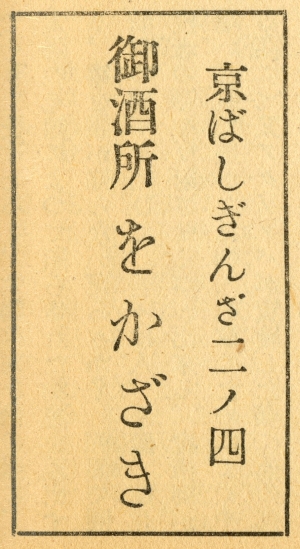 京ばしぎんざ二ノ四
御酒所をかざき